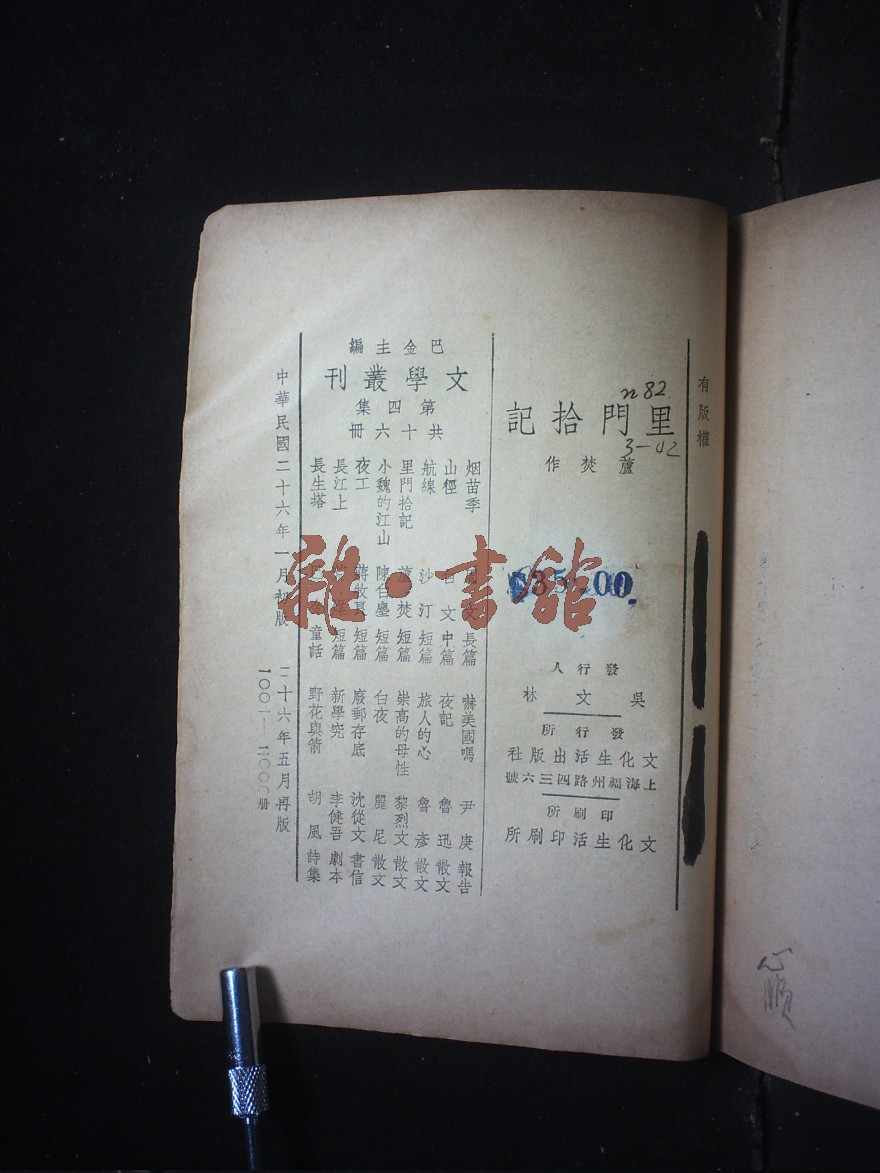 有版權
里門拾記
n 82
3-42
蘆焚作
$35.00
發行人
吳文林
發行所
文化生活出版社
上海福州路四三六號
印刷所
文化生活印刷所
巴金主編
文學叢刊
第四集
共十六冊
烟苗季 長篇
山徑 文 中篇
航線 沙汀 短篇
里門拾記 蘆焚 短篇
小魏的江山 陳白塵 短篇
夜工 蔣牧良 短篇
長江上 短篇
長生塔 童話
嚇美國嗎 尹庚 報告
夜記 魯迅 散文
旅人的心 魯彥 散文
崇高的母性 黎烈文 散文
白夜 麗尼 散文
廢郵存底 沈從文 書信
新學究 李健吾 劇本
野花與箭 胡風 詩集
中華民國二十六年一月初版
二十六年五月再版
一〇〇一—二〇〇〇冊
雜·書館
心順